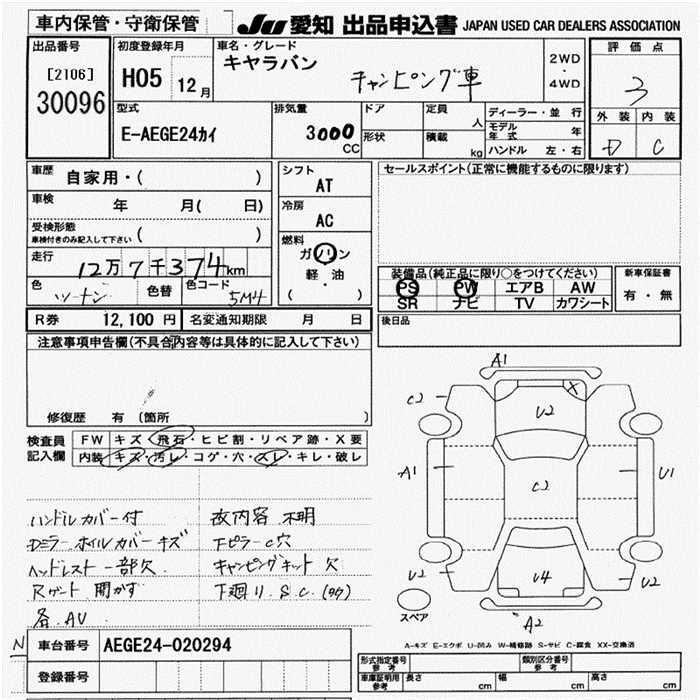 車内保管・守衛保管
JU 愛知 出品申込書 JAPAN USED CAR DEALERS ASSOCIATION
出品番号
[2106]
30096
初度登録年月
H05 12月
車名・グレード
キャラバン
チャンピング車
2WD
・
4WD
評価点
3
外装 内装
D C
型式
E-AEGE24カイ
排気量
3000
CC
ドア
形状
定員
人
積載
kg
ディーラー・並行
モデル年式 年
ハンドル 左・右
車歴
自家用・( )
車検
年 月( 日)
受検形態
車検付きのみ記入して下さい ( )
走行
12万7千374km
色
ツートン
色替
色コード
5M4
シフト
AT
冷房
AC
燃料
ガソリン
軽・油
( )
セールスポイント(正常に機能するものに限ります)
装備品(純正品に限り○をつけてください)
PS PW エアB AW
SR ナビ TV カワシート
新車保証書
有・無
R券 12,100 円
名変通知期限 月 日
後日品
注意事項申告欄(不具合内容等は具体的に記入して下さい)
修復歴 有 (箇所 )
検査員記入欄
FW キズ・飛石・ヒビ割・リペア跡・X要
内装 キズ・汚レ・コゲ・穴・スレ・キレ・破レ
ハンドルカバー付 改内容 不明
Dミラー.ホイルカバーキズ 下ピラーC穴
ヘッドレスト一部欠 キャンピングキット欠
Rゲート 開かず 下廻り.S.C.(タタ)
各AU
A1
C2
U2
A1
C2
U1
U2
U4
U2
A2
スペア
A-キズ E-エクボ U-凹み W-補修跡 S-サビ C-腐食 XX-交換済
N
車台番号 AEGE24-020294
登録番号
形式指定番号 参考
類別区分番号 参考
車庫証明用 参考
長さ cm
幅 cm
高さ cm